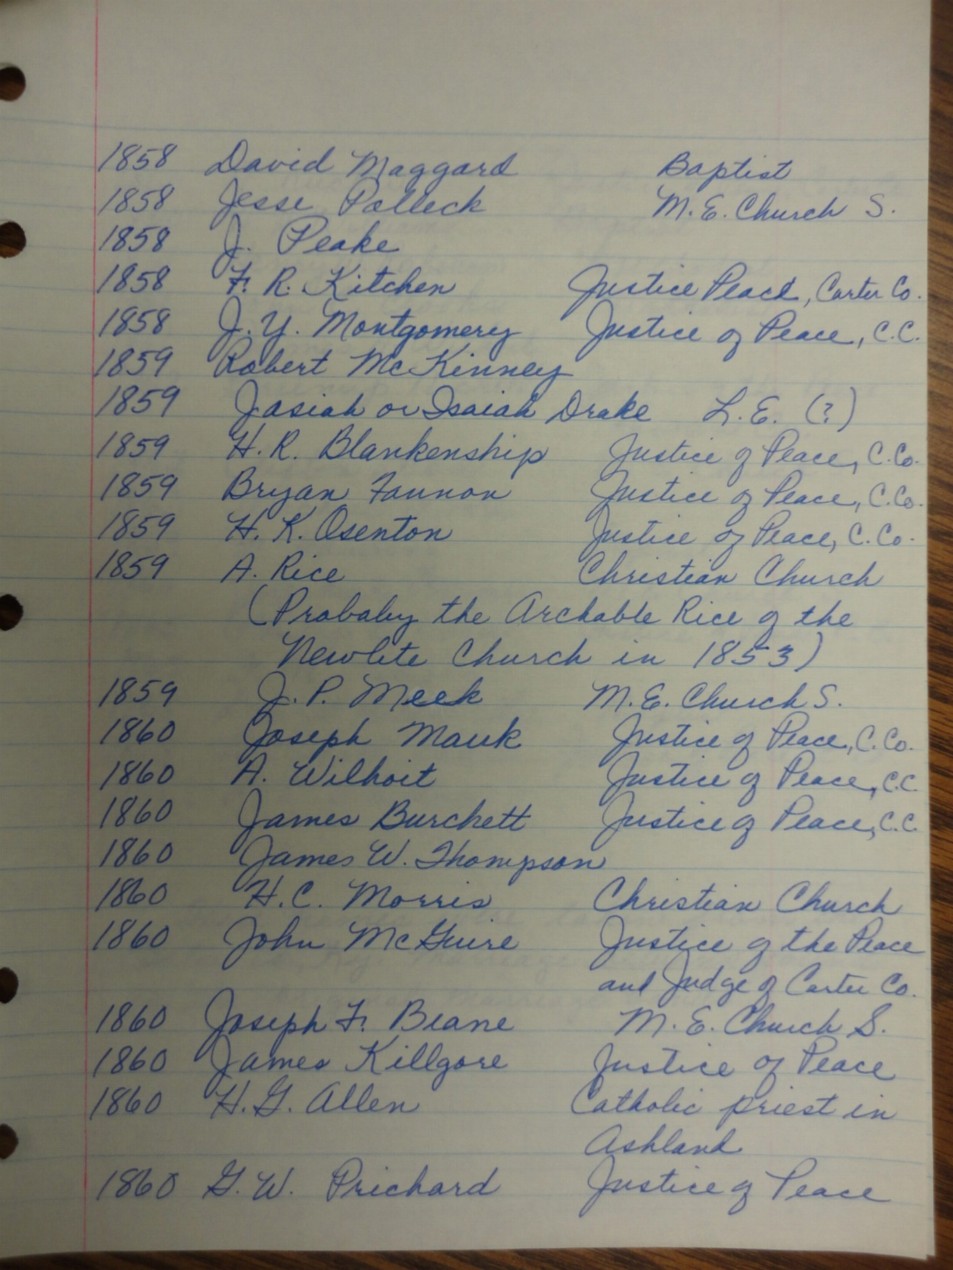 1858 David Maggard Baptist
1858 Jesse Polleck M.E. Church S.
1858 J. Peake
1858 F. R. Kitchen Justice Peace, Carter Co.
1858 J. Y. Montgomery Justice of Peace, C.C.
1859 Robert McKinney
1859 Jasiah or Isaiah Drake L.E. (?)
1859 H. R. Blankenship Justice of Peace, C.Co.
1859 Bryan Fannon Justice of Peace, C.Co.
1859 H. K. Osenton Justice of Peace, C.Co.
1859 A. Rice Christian Church
(Probaby the Archable Rice of the
Newlite Church in 1853)
1859 J. P. Meek M.E. Church S.
1860 Joseph Mauk Justice of Peace, C.Co.
1860 A. Wilhoit Justice of Peace, C.C.
1860 James Burchett Justice of Peace, C.C.
1860 James W. Thompson
1860 H.C. Morris Christian Church
1860 John McGuire Justice of the Peace
and Judge of Carter Co.
1860 Joseph F. Beane M.E. Church S.
1860 James Killgore Justice of Peace
1860 H.G. Allen Catholic priest in
Ashland
1860 G. W. Prichard Justice of Peace